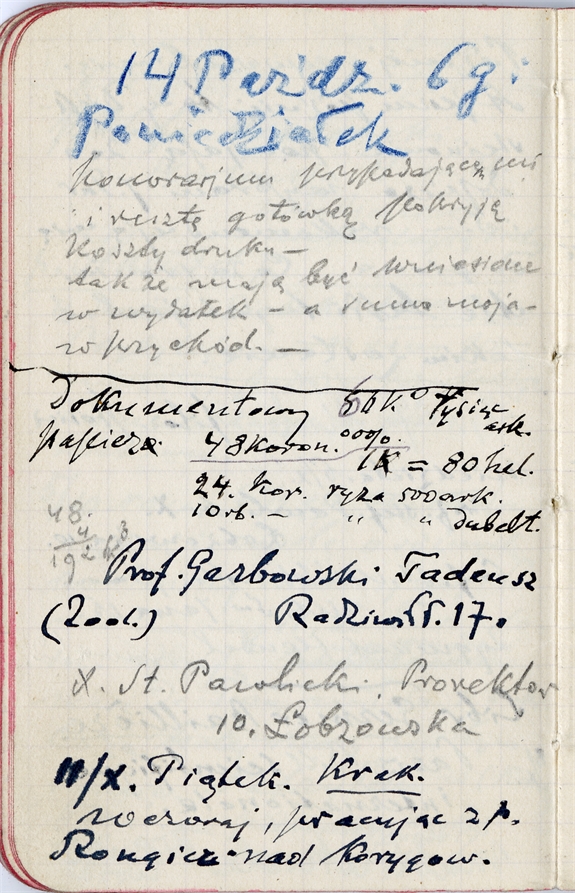 14 Paźdz. 6 g:
Poniedziałek
honorarjum przypadające mi
i resztę gotówką pokryją
koszty druku —
także mają być wniesione
w wydatek – a suma moja –
w przychód. —
Dokumentowy tysiąc
papier ark.
48 koron.
1K = 80 hal.
24. kor. ryza 500 ark.
10 rb. — " " dubelt.
48.
4
192 k
Prof. Garbowski Tadeusz
(Zool.) Radziwiłł. 17.
X. St. Pawlicki, Prorektor
10. Łobzowska
11/X. Piątek. Krak.
wczoraj, pracując z p.
nad korygow.